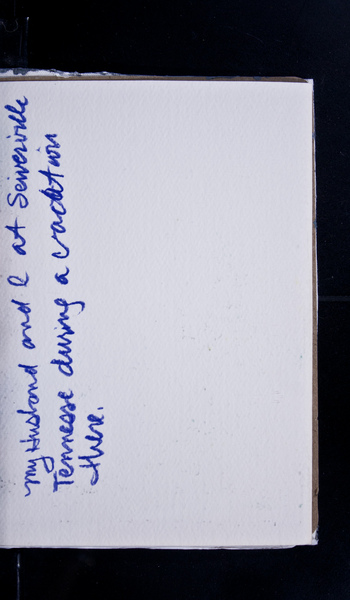 my Husband and I at Seiverville
Tennesse during a vacation
there.